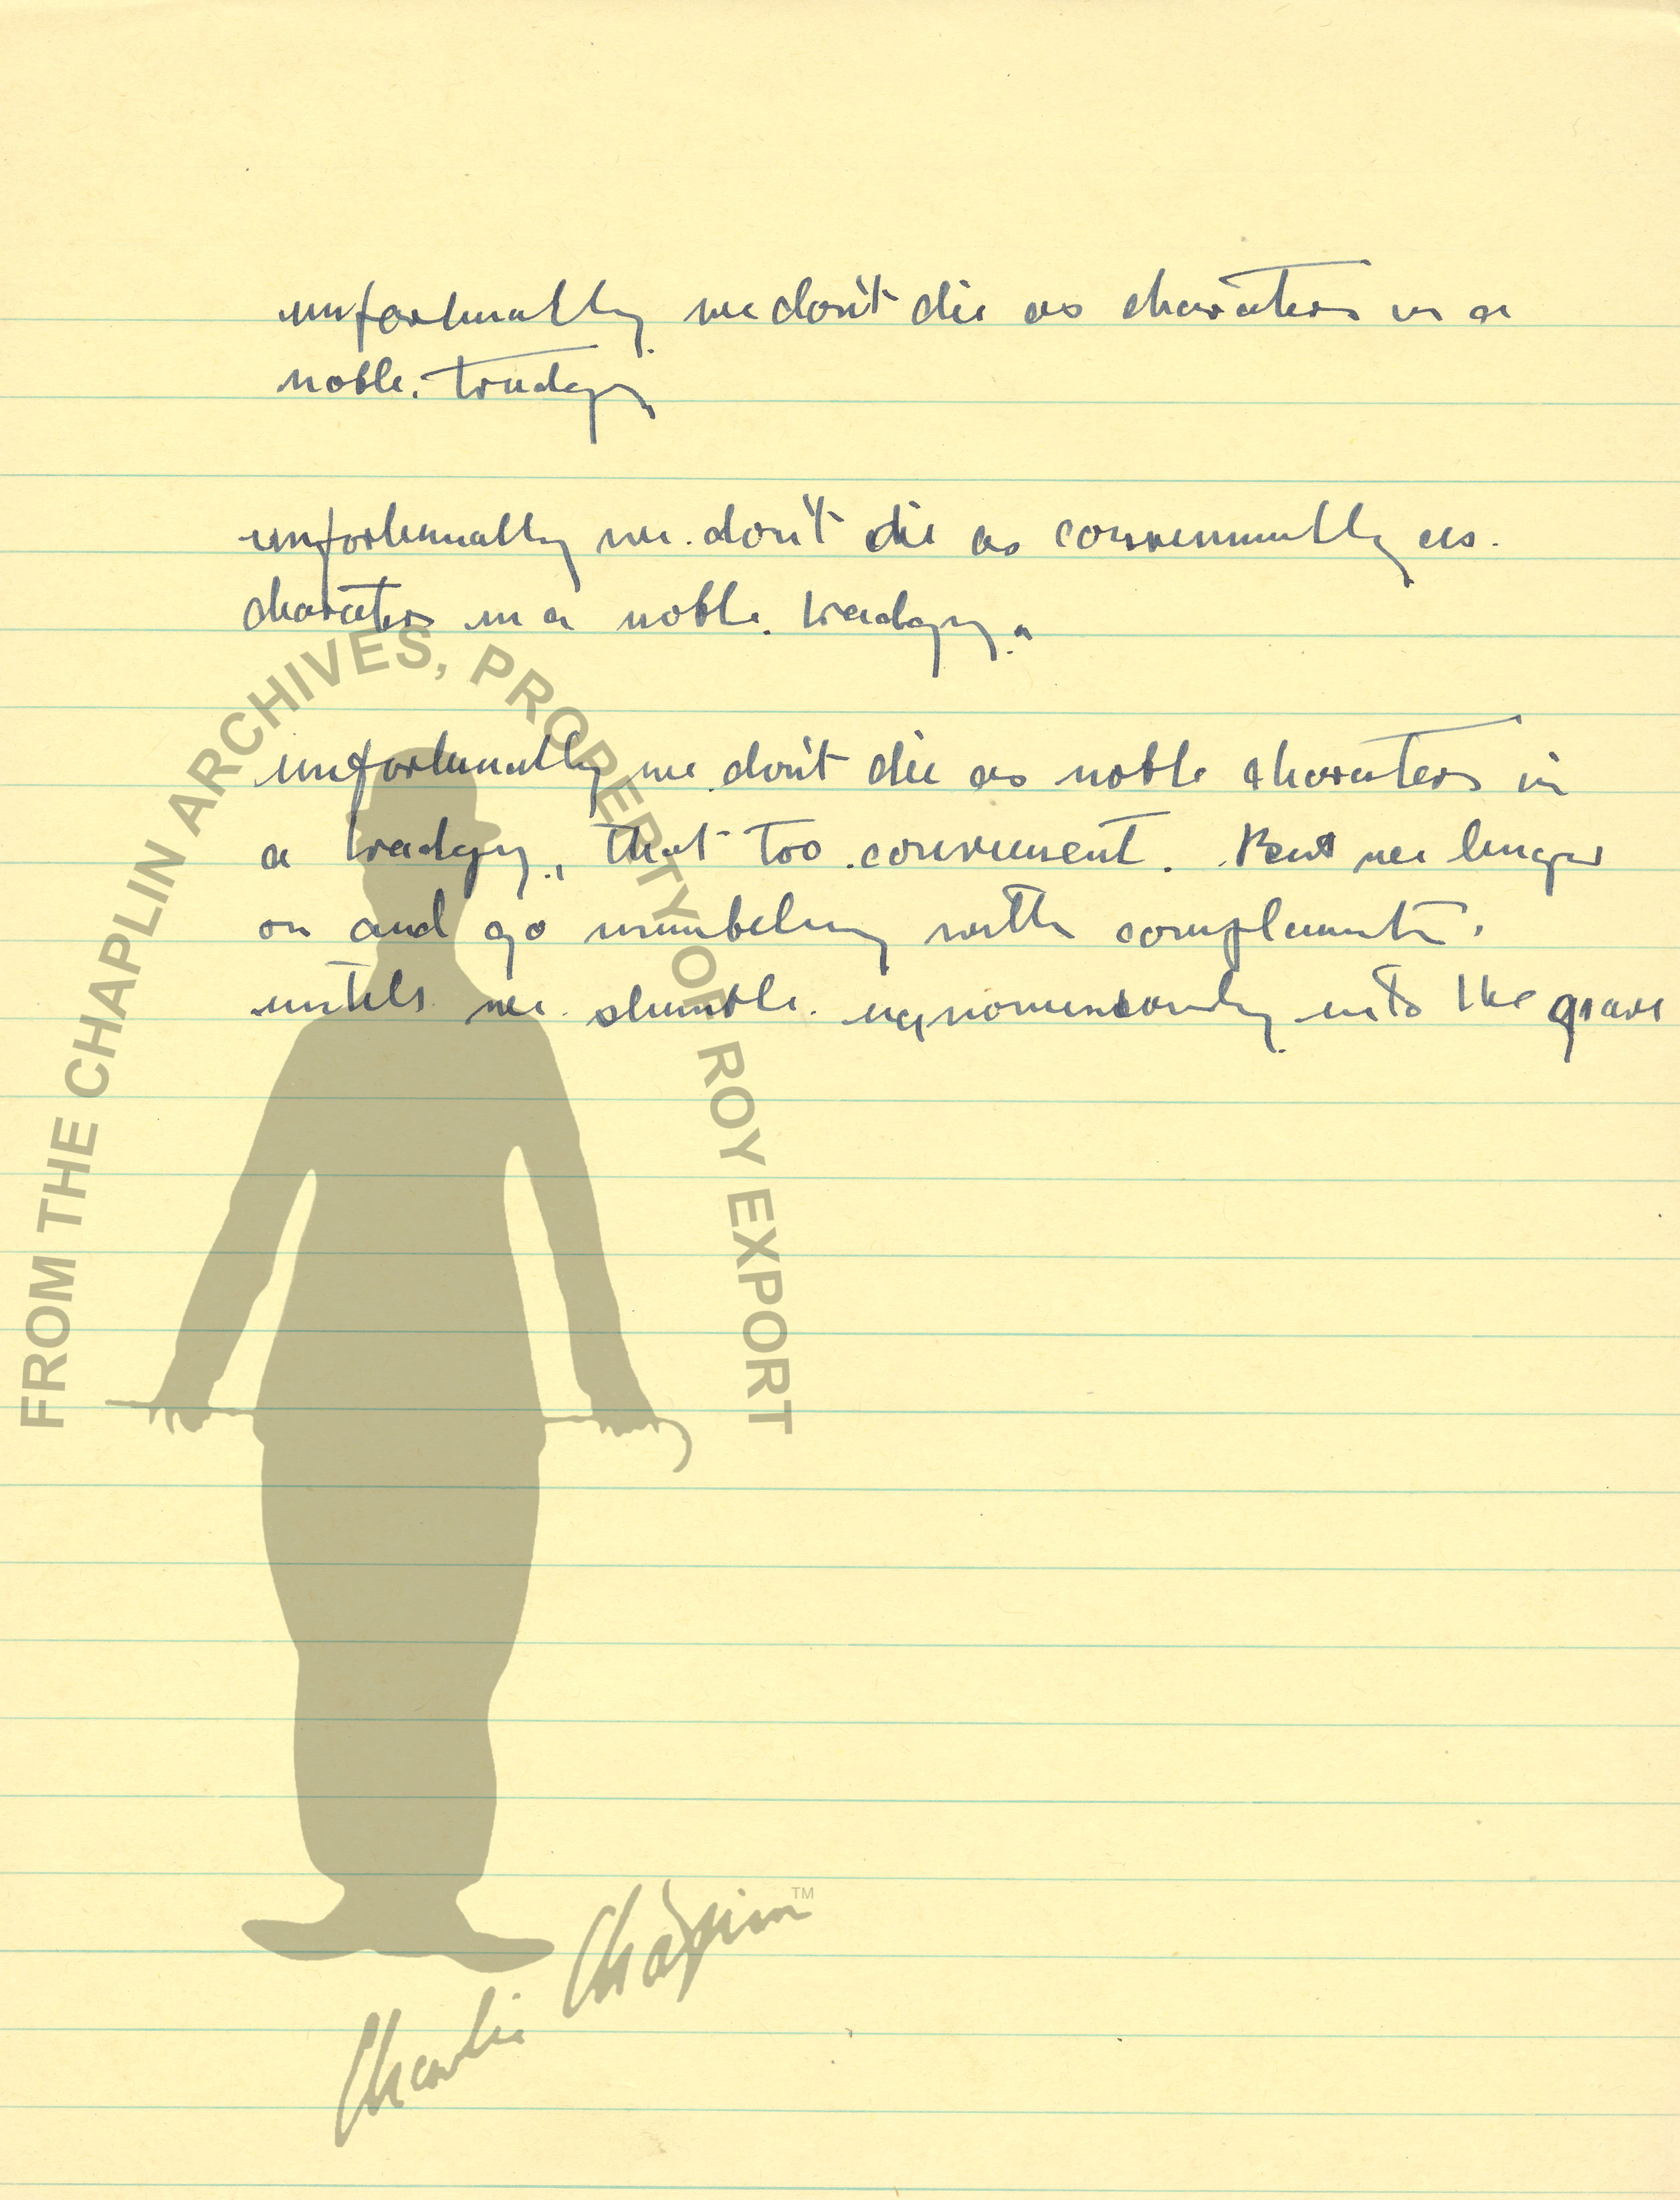 unfortunally we don't die as charaters in a
noble. tradegy
unfortunnally we. don't die as convenunently as.
charaters in a noble. tradegy.
unfortunually we don't die as noble charaters in
a tradegy, that too convenient. But we linger
on and go mumbeling with complaints.
untill we. stumble. ignominiously into the grave
FROM THE CHAPLIN ARCHIVES, PROPERTY OF ROY EXPORT
Charlie Chaplin TM